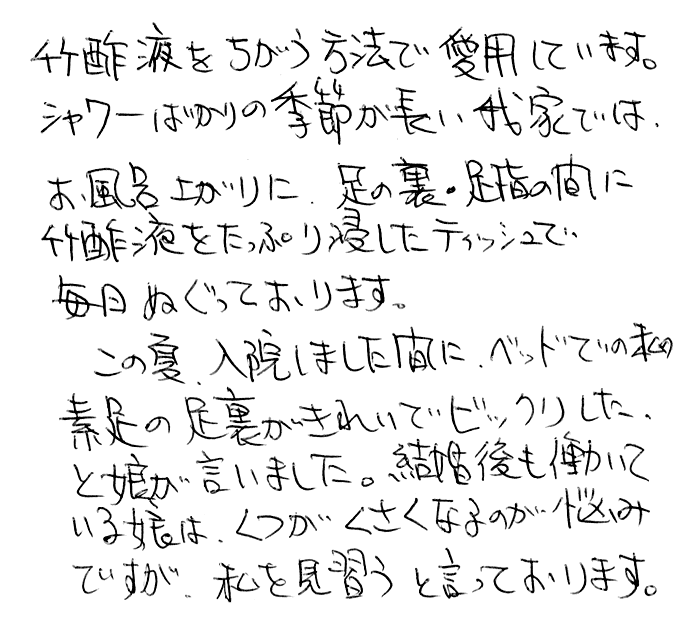 竹酢液をちがう方法で愛用しています。
シャワーばかりの季節が長い我家では、
お風呂上がりに、足の裏・足指の間に
竹酢液をたっぷり浸したティッシュで
毎日ぬぐっております。
この夏、入院しました間に、ベッドでの私の
素足の足裏がきれいでビックリした、
と娘が言いました。結婚後も働いて
いる娘は、くつがくさくなるのが悩み
ですが、私を見習うと言っております。